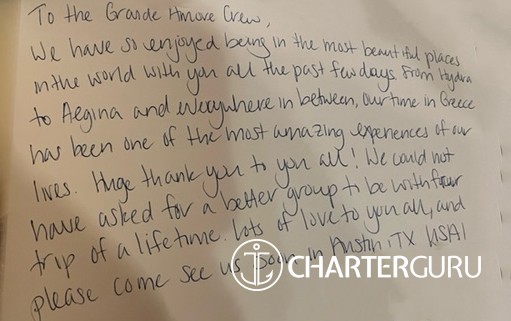 To the Grande Amore Crew,
We have so enjoyed being in the most beautiful places
in the world with you all the past few days. From Hydra
to Aegina and everywhere in between, our time in Greece
has been one of the most amazing experiences of our
lives. Huge thank you to you all! We could not
have asked for a better group to be with for our
trip of a lifetime. Lots of love to you all, and
please come see us soon in Austin, TX USA!
CHARTERGURU